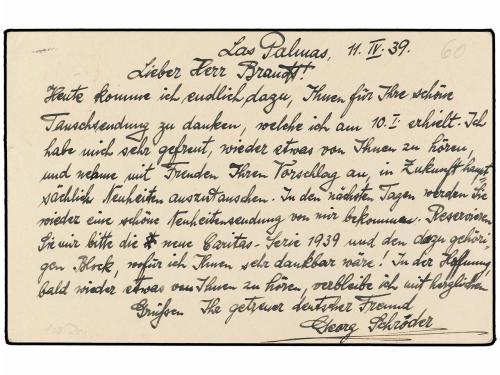 Las Palmas, 11. IV. 39.
60
Lieber Herr Brandt!
Heute komme ich endlich dazu, Ihnen für Ihre schöne
Tauschsendung zu danken, welche ich am 10. I. erhielt. Ich
habe mich sehr gefreut, wieder etwas von Ihnen zu hören,
und nehme mit Freuden Ihren Vorschlag an, in Zukunft haupt
sächlich Neuheiten auszutauschen. In den nächsten Tagen werden Sie
wieder eine schöne Neuheitensendung von mir bekommen. Reservieren
Sie mir bitte die neue Caritas-Serie 1939 und den dazu gehöri
gen Block, wofür ich Ihnen sehr dankbar wäre! In der Hoffnung
bald wieder etwas von Ihnen zu hören, verbleibe ich mit herzlichen
Grüßen Ihr getreuer deutscher Freund
Georg Schröder